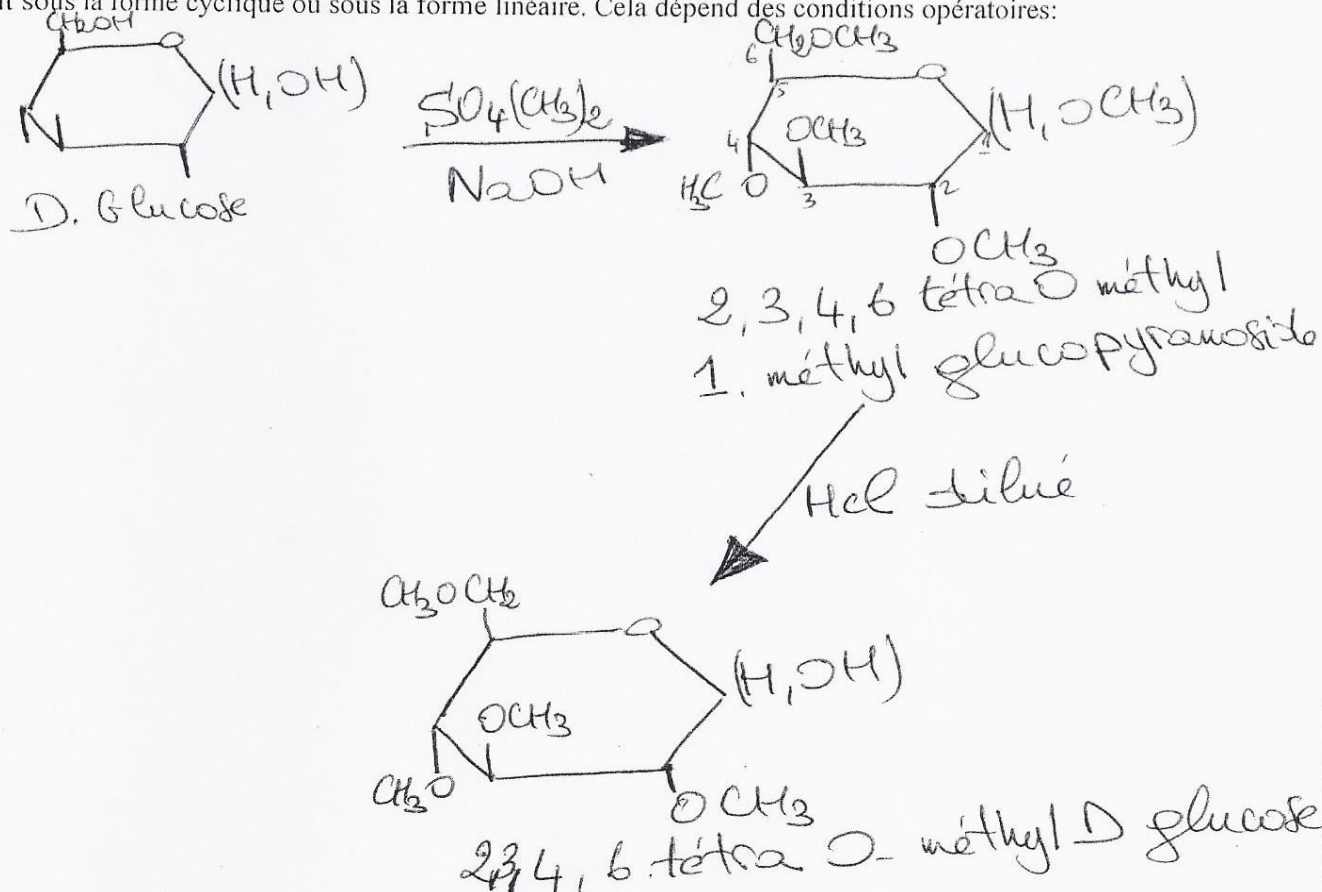 sous la forme cyclique ou sous la forme linéaire. Cela dépend des conditions opératoires:
CH2OH
O
(H, OH)
D. Glucose
SO4(CH3)2
NaOH
6 CH2OCH3
5
O
4
OCH3
(H, OCH3)
1
H3C O
3
2
OCH3
2, 3, 4, 6 tétra O méthyl
1. méthyl glucopyranoside
Hcl dilué
CH3OCH2
O
(H, OH)
OCH3
CH3O
OCH3
2,3,4, 6. tétra O- méthyl D glucose